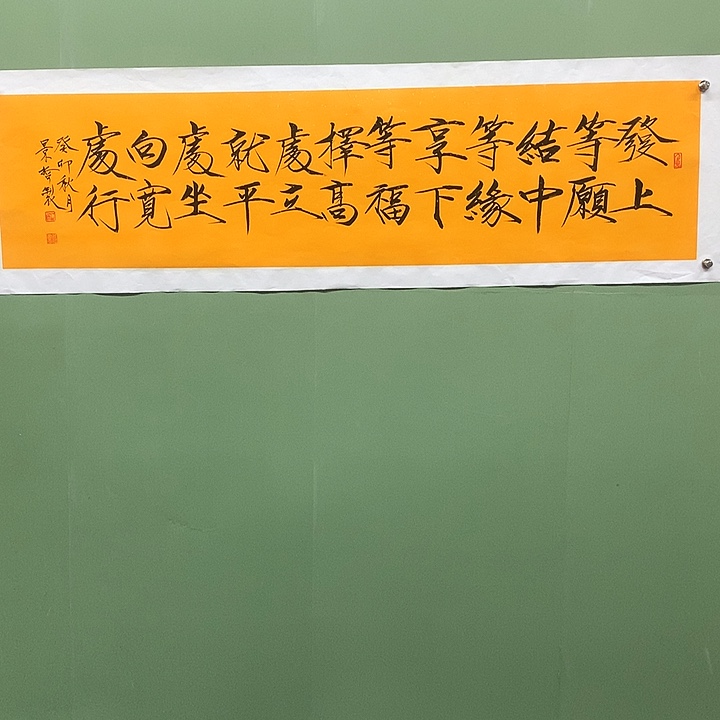 發上
等願
結中
等緣
享下
等福
擇高
處立
就平
處坐
向寬
處行
癸卯秋月
景